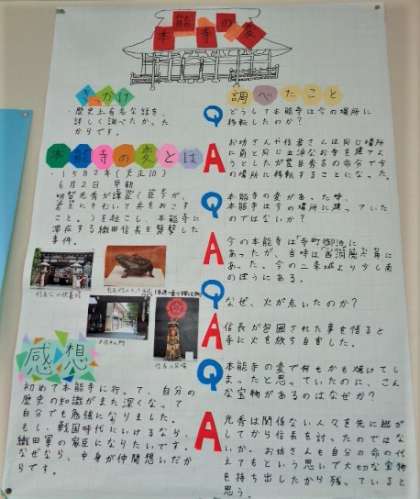 本能寺の変
きっかけ
歴史上有名な話を、
詳しく調べたかった
からです。
本能寺の変とは
1582年(天正10)
6月2日 早朝
明智光秀が謀反(臣下が、
君主にそむいて兵をおこす
こと。)を起こし、本能寺に
滞在する織田信長を襲撃した
事件。
感想
初めて本能寺に行って、自分の
歴史の知識がまた深くなって
自分でも勉強になりました。
もし、戦国時代にいけるなら、
織田軍の家臣になりたいです。
なぜなら、中身が仲間想いだか
らです。
調べたこと
Q
どうして本能寺は今の場所に
移転したのか?
A
お坊さんや信者さんは同じ場所
に前と同じ立派なお寺を建てよ
うとしたが豊臣秀吉の命令で今
の場所に移転することになった。
Q
本能寺の変があった時、
本能寺は今の場所に建っていた
のではないか?
A
今の本能寺は「寺町御池」に
あったが、当時は
あった。今の二条城より少し南
のほうにある。
Q
なぜ、火が点いたのか?
A
信長が包囲された事を悟ると
手に火を放ち自害した。
Q
本能寺の変で何もかも焼けてし
まったと思っていたのに、こん
な宝物があるのはなぜか?
A
光秀は関係ない人々を先に逃が
してから信長を討ったのではな
いか。お坊さんも自分の命の代
えてもという思いで大切な宝物
を持ち出したから残っていると
思う。